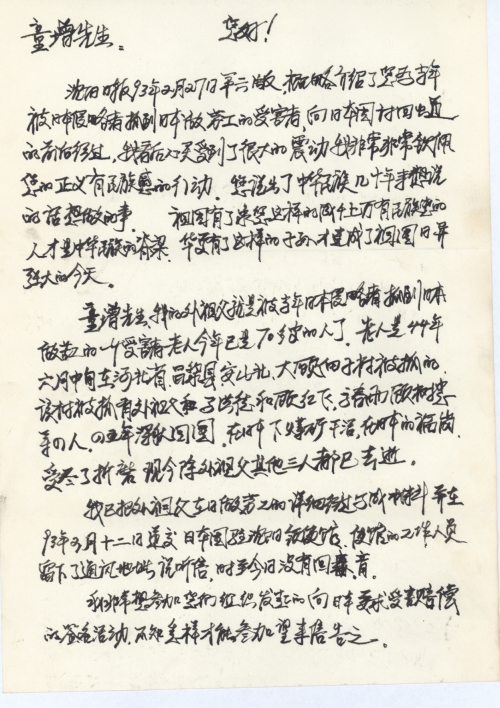 童增先生： 您好！
沈阳日报93年2月27日第六版，粗略介绍了您为当年
被日本侵略者抓到日本做劳工的受害者，向日本国讨回公道
的前后经过，我看后心灵受到了很大的震动，我非常非常钦佩
您的正义有民族感的行动。您说出了中华民族几十年来想说
的话想做的事。 祖国有了象您这样的成千上万有民族感的
人才是中华民族的脊梁，华夏有了这样的子孙才造成了祖国日异
强大的今天。
童增先生，我的外祖父就是被当年日本侵略者抓到日本
做劳工的一个受害者，老人今年已是70多岁的人了。老人是44年
六月中旬在河北省昌黎县 被抓的。
该村被抓有外祖父和
的人。四五年深秋回国。在日本下煤矿干活，在日本的福岗
受尽了折磨 现今除外祖父其他三人都已去逝。
我已把外祖父在日做劳工的详细经过写成材料并在
93年3月十二日递交日本国驻沈阳领使馆，使馆的工作人员
留下了通讯地址说听信，时至今日没有回音。
我非常想参加您们组织发起的向日本要求受害赔偿
的签名活动，不知怎样才能参加望来信告之。